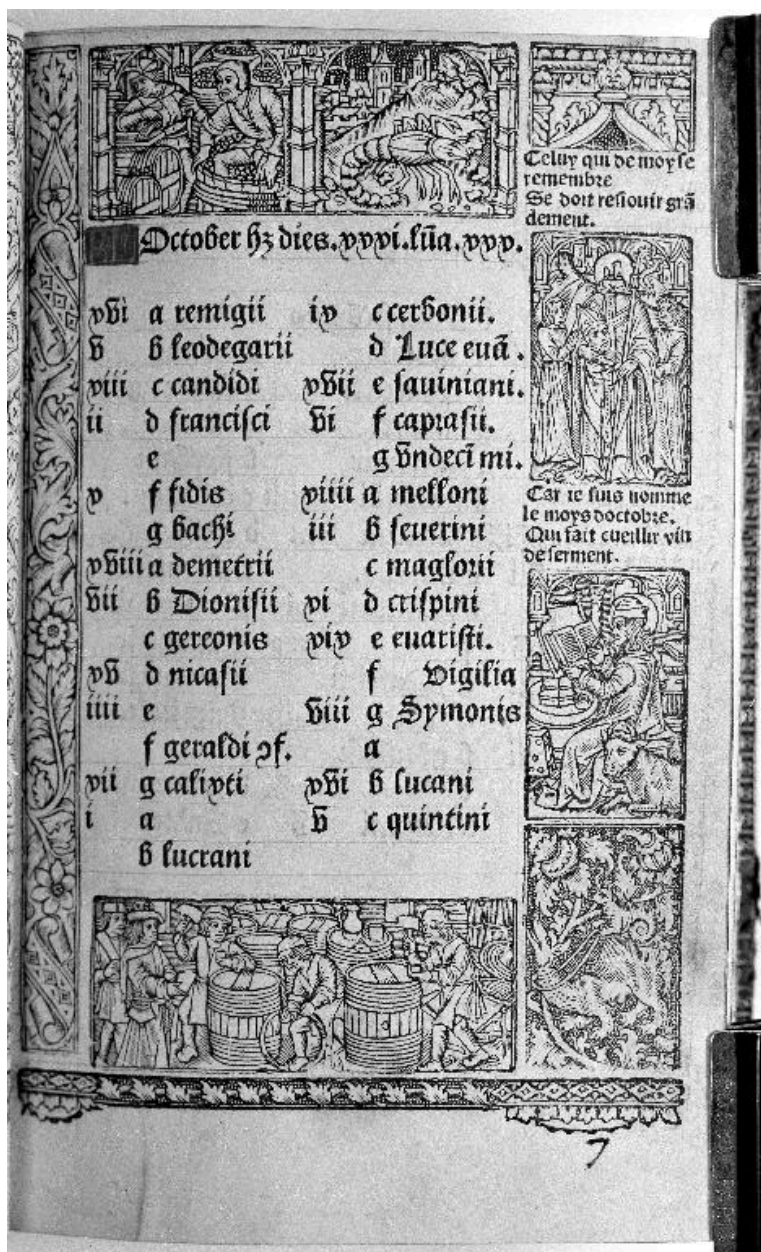 October hʒ dies.xxxi.lūa.xxx.
xvi a remigii
v b leodegarii
xiii c candidi
ii d francisci
e
x f fidis
g bachi
xviii a demetrii
vii b Dionisii
c gereonis
xv d nicasii
iiii e
f geraldi ꝯf.
xii g calixti
i a
b lucrani
ix c cerbonii.
d Luce euā.
xvii e sauiniani.
vi f caprasii.
g vndecī mi.
xiiii a melloni
iii b seuerini
c maglorii
xi d crispini
xix e euaristi.
f Vigilia
viii g Symonis
a
xvi b lucani
v c quintini
Celuy qui de moy se
remembre
Se doit resiouir grā
dement.
Car ie suis nomme
le moys doctobre.
Qui fait cueillir vin
de serment.
7